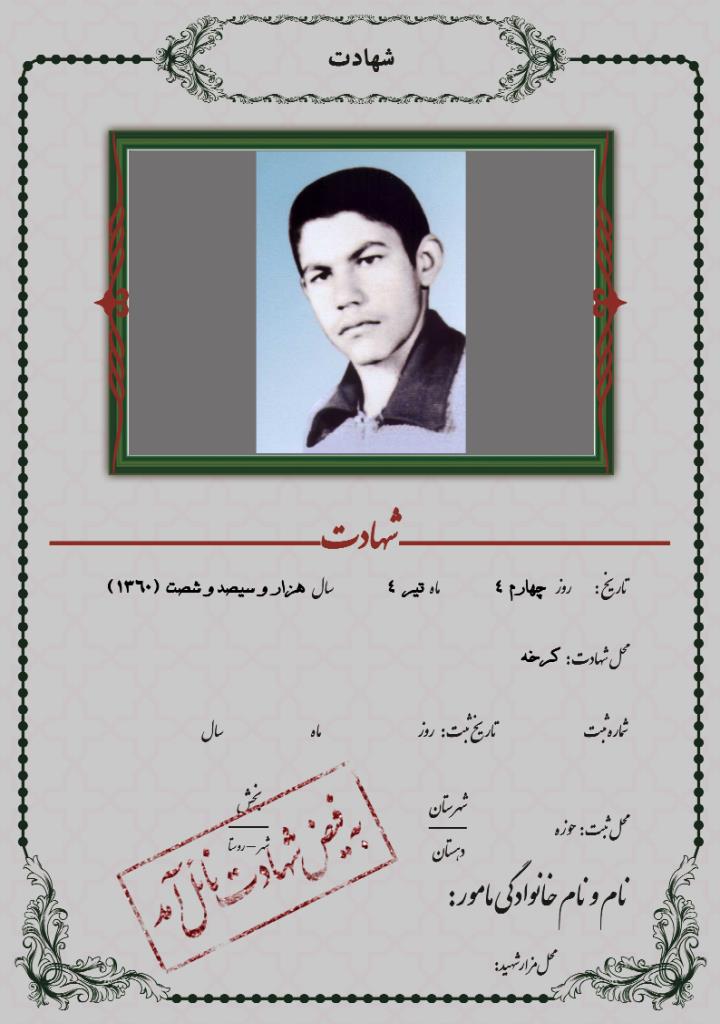 شهادت
شهادت
تاریخ: روز چهارم ٤ ماه تیر ٤ سال هزار و سیصد و شصت (۱۳٦۰)
محل شهادت: کرخه
شماره ثبت تاریخ ثبت: روز ماه سال
محل ثبت: حوزه شهرستان بخش
دهستان شهر – روستا
به فیض شهادت نائل آمد
نام و نام خانوادگی مامور:
محل مزار شهید: